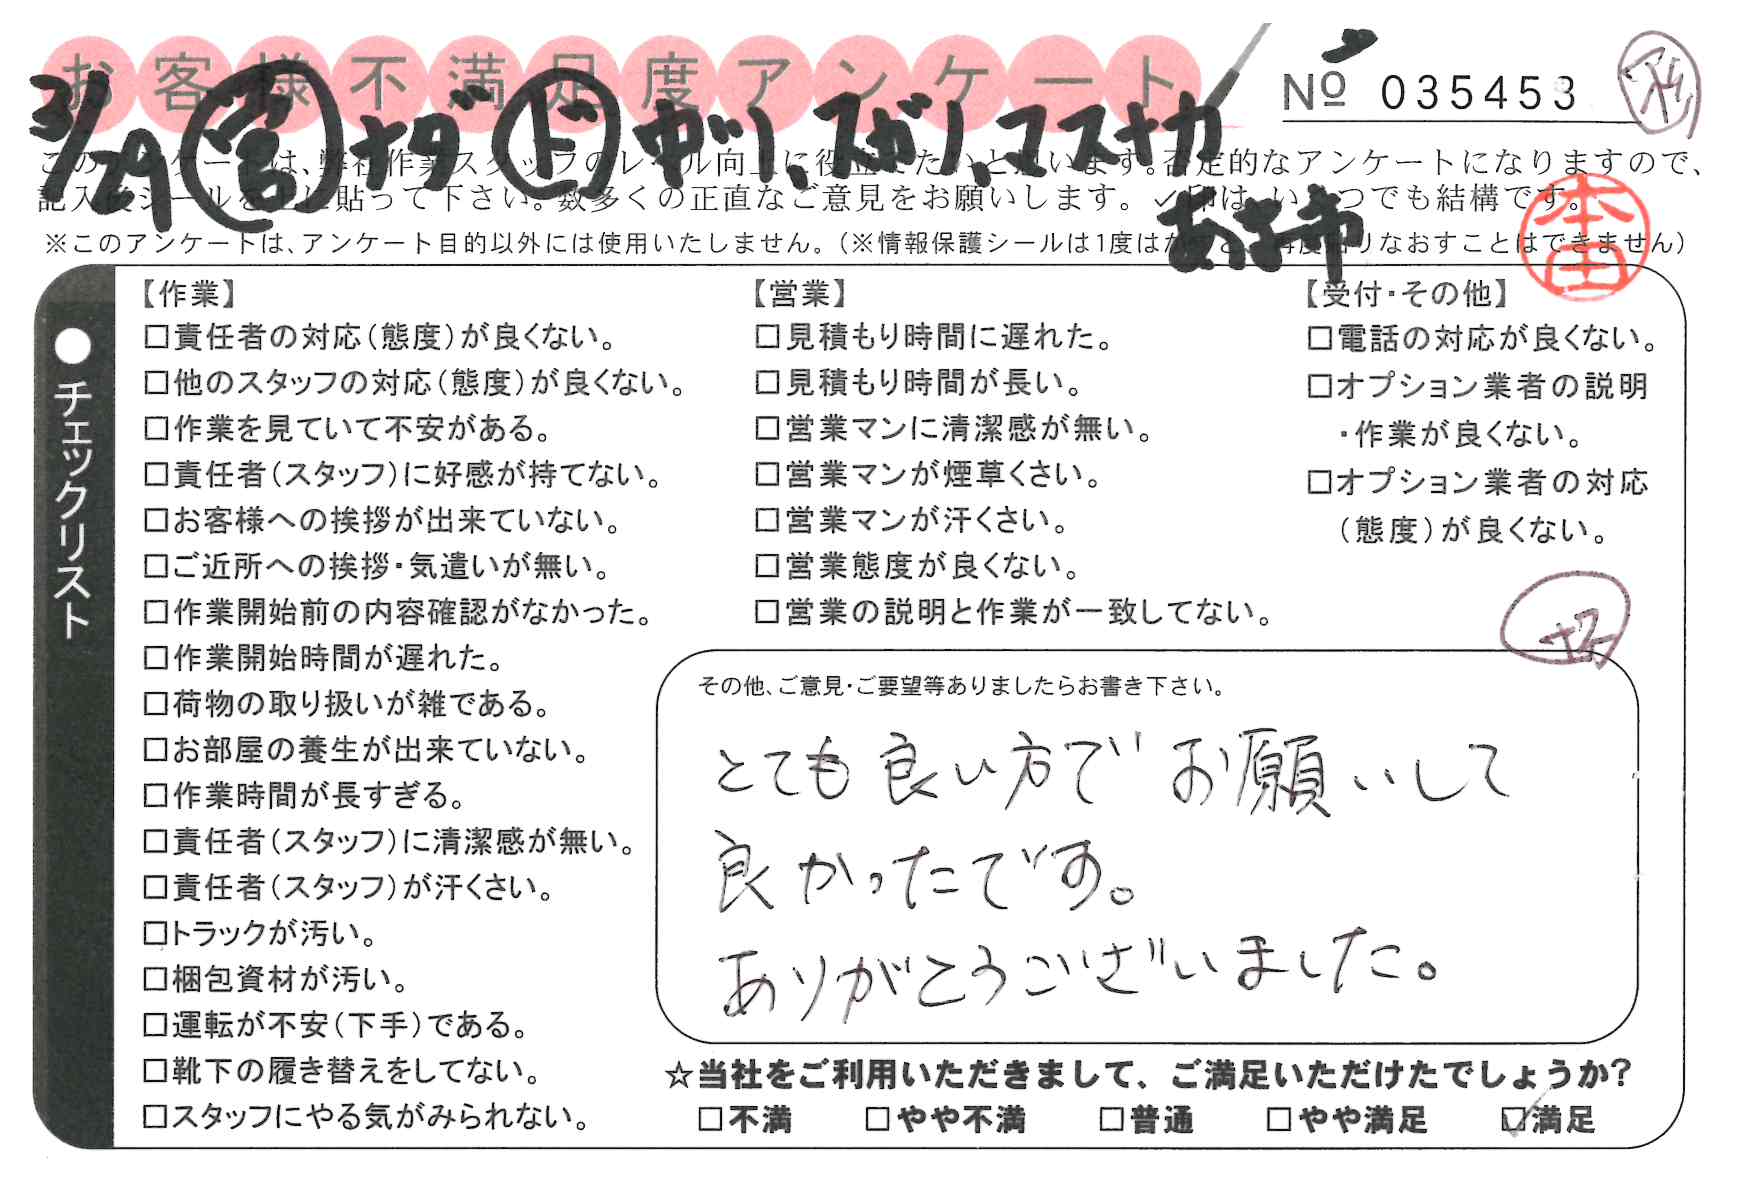 お客様不満足度アンケート
Nº 035453
3/29 営 ナダ ド ゆづり、スガノ、マスナカ
あま市
このアンケートは、弊社作業スタッフのレベル向上に役立てたいと思います。否定的なアンケートになりますので、
記入後シールを上に貼って下さい。数多くの正直なご意見をお願いします。✓印は、いくつでも結構です。
※このアンケートは、アンケート目的以外には使用いたしません。(※情報保護シールは1度はがすと、再度貼りなおすことはできません)
本田
●チェックリスト
【作業】
□責任者の対応(態度)が良くない。
□他のスタッフの対応(態度)が良くない。
□作業を見ていて不安がある。
□責任者(スタッフ)に好感が持てない。
□お客様への挨拶が出来ていない。
□ご近所への挨拶・気遣いが無い。
□作業開始前の内容確認がなかった。
□作業開始時間が遅れた。
□荷物の取り扱いが雑である。
□お部屋の養生が出来ていない。
□作業時間が長すぎる。
□責任者(スタッフ)に清潔感が無い。
□責任者(スタッフ)が汗くさい。
□トラックが汚い。
□梱包資材が汚い。
□運転が不安(下手)である。
□靴下の履き替えをしてない。
□スタッフにやる気がみられない。
【営業】
□見積もり時間に遅れた。
□見積もり時間が長い。
□営業マンに清潔感が無い。
□営業マンが煙草くさい。
□営業マンが汗くさい。
□営業態度が良くない。
□営業の説明と作業が一致してない。
【受付・その他】
□電話の対応が良くない。
□オプション業者の説明
・作業が良くない。
□オプション業者の対応
(態度)が良くない。
その他、ご意見・ご要望等ありましたらお書き下さい。
とても良い方でお願いして
良かったです。
ありがとうございました。
☆当社をご利用いただきまして、ご満足いただけたでしょうか?
□不満 □やや不満 □普通 □やや満足 ☑満足